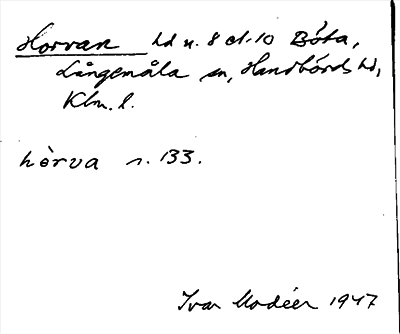 Horvan hd u. 8 o. 10 Böta,
Långemåla sn, Handbörds hd,
Klm. l.
hòrva s. 133.
Ivar Modéer 1947